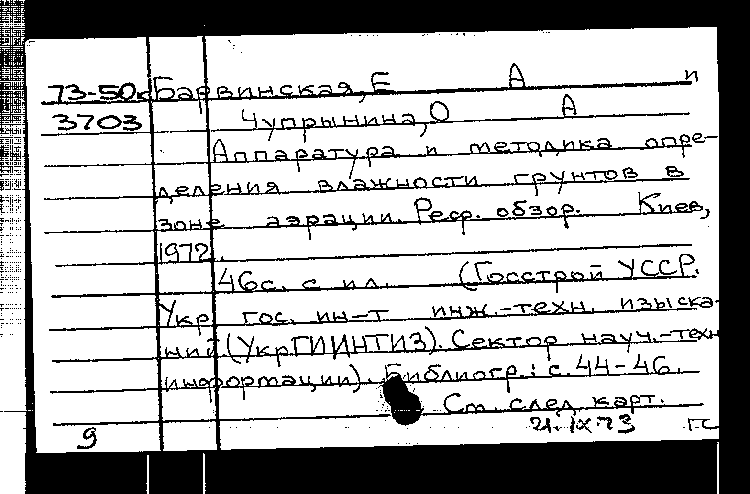 73-50к Барвинская, Е А и
3703 Чупрынина, О А
Аппаратура и методика опре-
деления влажности грунтов в
зоне аэрации. Реф. обзор. Киев,
1972.
46с. с ил. (Госстрой УССР.
Укр гос. ин-т инж.-техн. изыска-
ний (УкрГИИНТИЗ). Сектор науч.-техн
информации). Библиогр.: с. 44-46.
См. след. карт.
9 21.IX.73 ГС